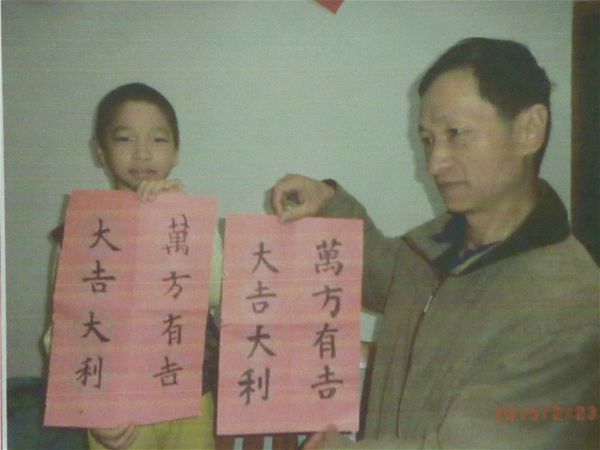 萬方有吉
大吉大利
萬方有吉
大吉大利